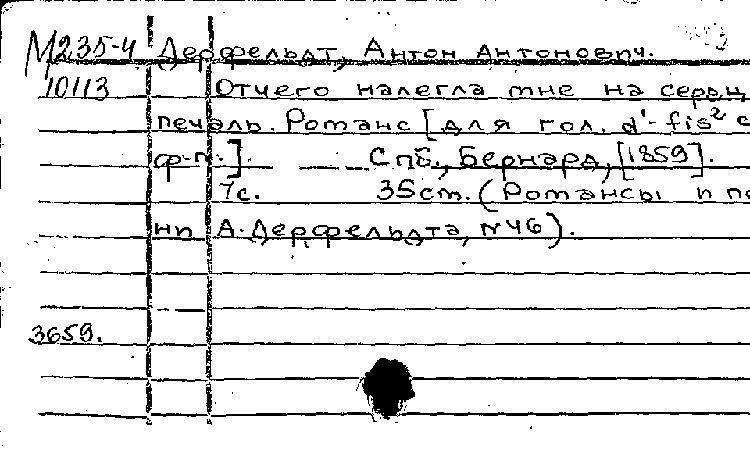 М235-4 Дерфельдт, Антон Антонович.
10113 Отчего налегла мне на сердц
печаль. Романс [для гол. d'-fis² с
ф-п.]. Спб., Бернард, [1859].
7с. 35см. (Романсы и пе
ни А. Дерфельдта, N46).
3659.